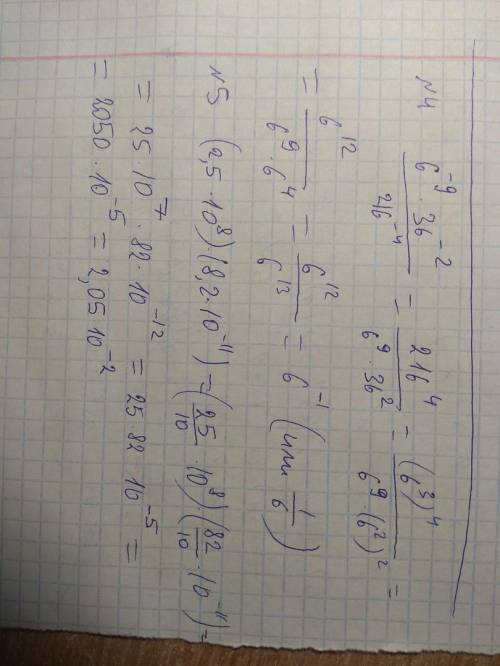 №4 (6^{-9} · 36^{-2})/(216^{-4}) = (216^4)/(6^9 · 36^2) = ((6^3)^4)/(6^9 (6^2)^2) =
= (6^{12})/(6^9 · 6^4) = (6^{12})/(6^{13}) = 6^{-1} (или 1/6)
№5 (2,5 · 10^8)(8,2 · 10^{-11}) = (25/10 · 10^8) · (82/10 · 10^{-11}) =
= 25 · 10^7 · 82 · 10^{-12} = 25 82 10^{-5} =
= 2050 · 10^{-5} = 2,05 10^{-2}